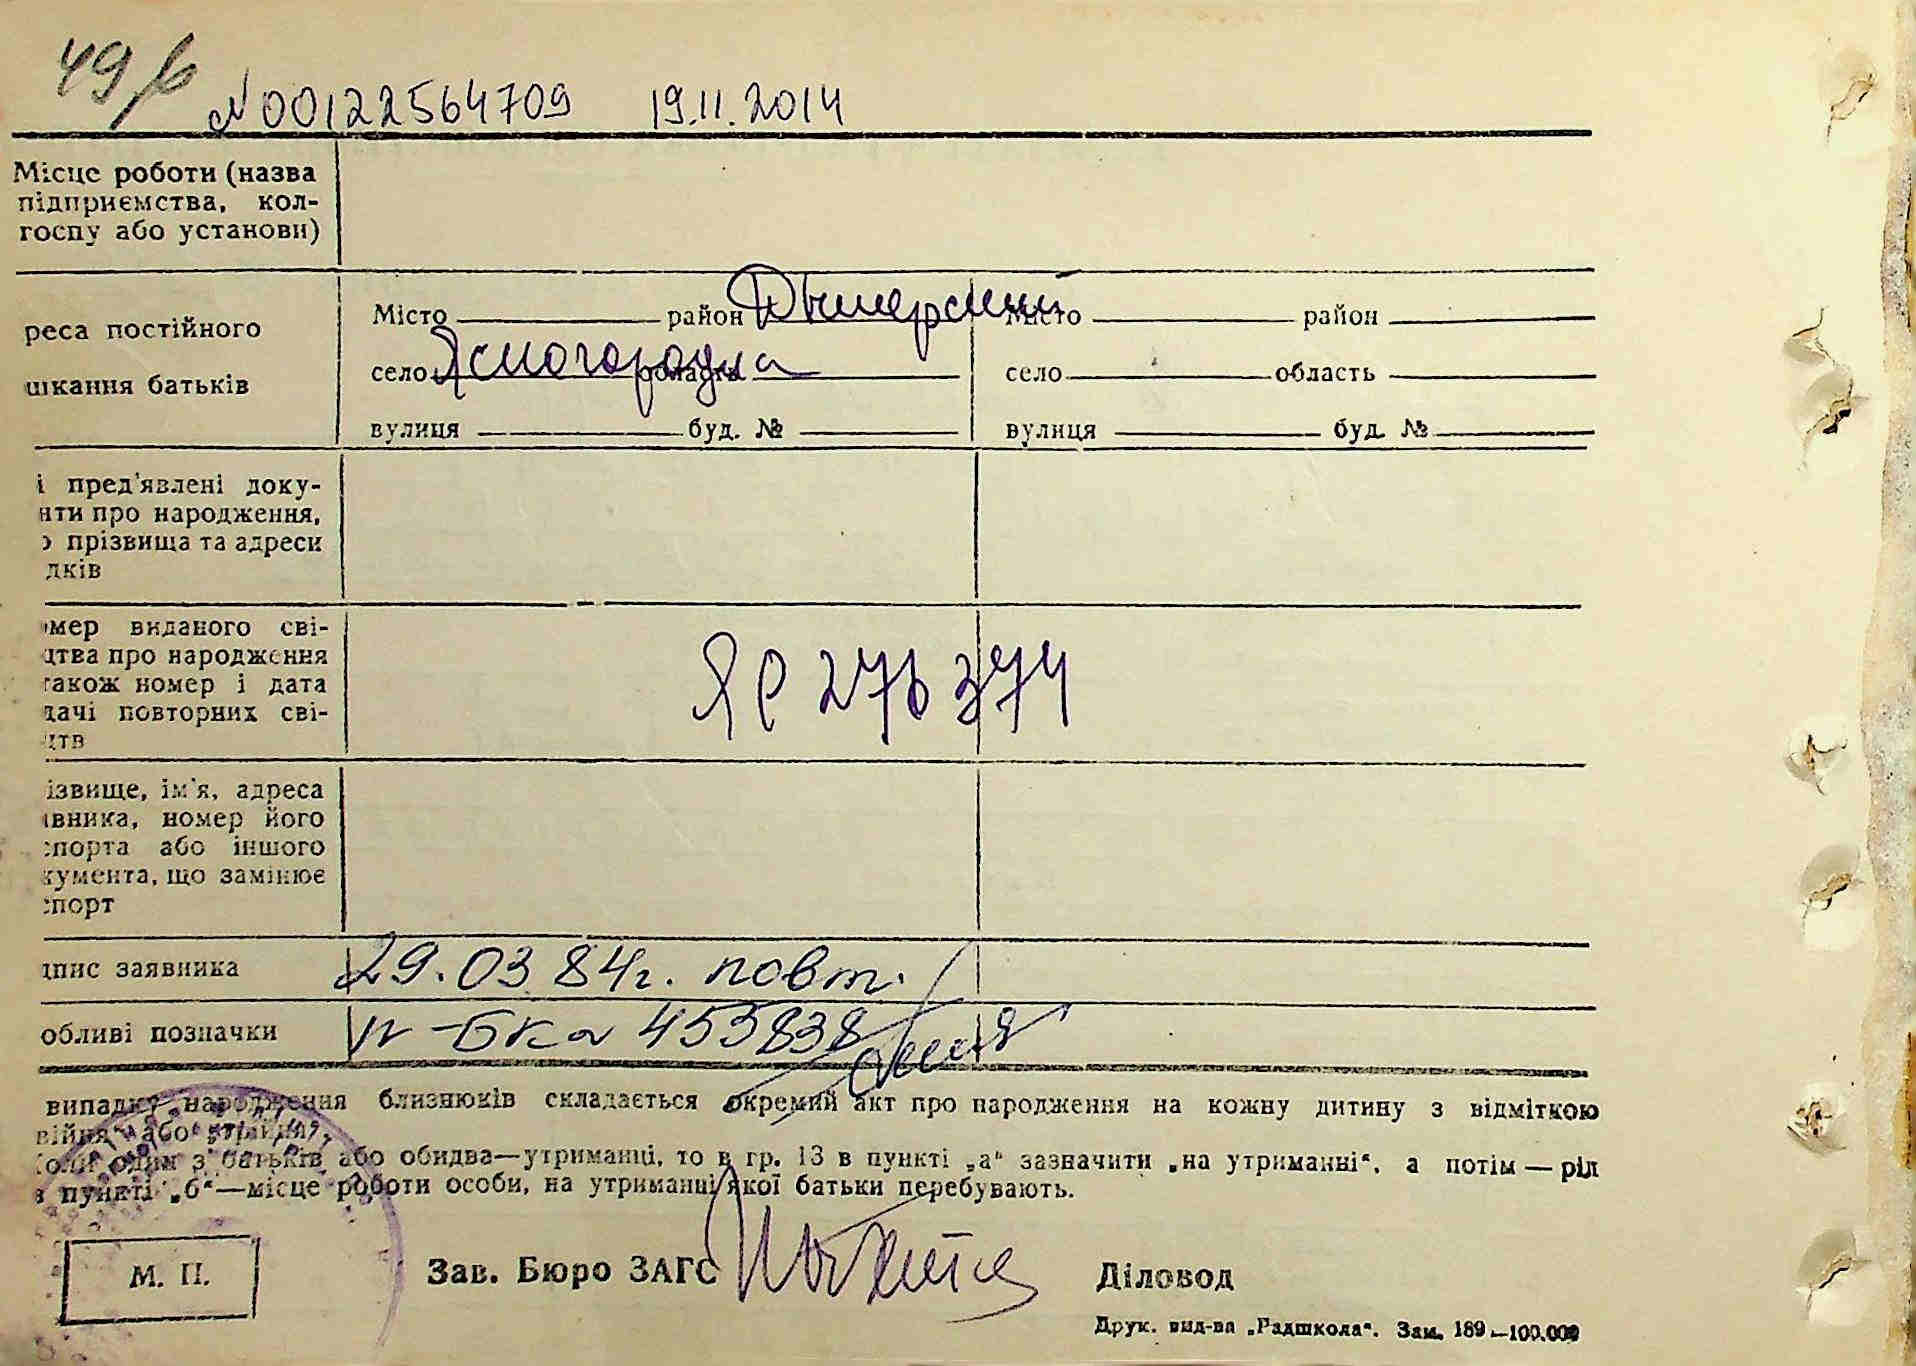 49
N 00122564709 19.11.2014
Місце роботи (назва
підприємства, кол-
госпу або установи)
реса постійного
шкання батьків
Місто район Дымерский
село Ясногородка область
вулиця буд. №
Місто район
село область
вулиця буд. №
і пред'явлені доку-
нти про народження,
о прізвища та адреси
дків
омер виданого сві-
цтва про народження
також номер і дата
дачі повторних сві-
цтв
ЯР 276374
ізвище, ім'я, адреса
івника, номер його
спорта або іншого
кумента, що замінює
спорт
дпис заявника
29.03.84г. повт.
обливі позначки
453838
випадку народження близнюків складається окремий акт про народження на кожну дитину з відміткою
війня" або
Коли один з батьків або обидва—утриманці, то в гр. 13 в пункті „а" зазначити „на утриманні", а потім — ріл
в пункті „б"—місце роботи особи, на утриманні якої батьки перебувають.
М. П.
Зав. Бюро ЗАГС
Діловод
Друк. вид-ва „Радшкола". Зам. 189—100.000